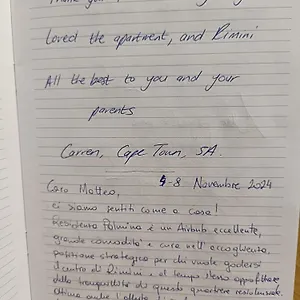 Thank you
Loved the apartment, and Rimini
All the best to you and your
parents
Carren, Cape Town, SA.
Caro Matteo, 4-8 Novembre 2024
ci siamo sentiti come a casa!
Residenza Palmina è un Airbnb eccellente,
grande comodità e cura nell'accoglienza,
posizione strategica per chi vuole godersi
il centro di Rimini e al tempo stesso approfittare
della tranquillità di questo quartiere residenziale.
Ottima anche